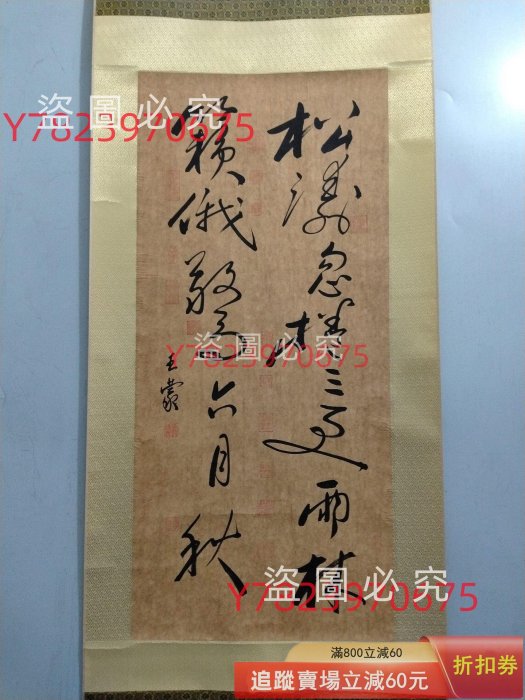 松濤忽捲三更雨林
籟俄驚六月秋
王蒙
盜圖必究
Y7823970675
盜圖必究
Y7823970675
盜圖必究
Y7823970675
滿800立減60
追蹤賣場立減60元
折扣券